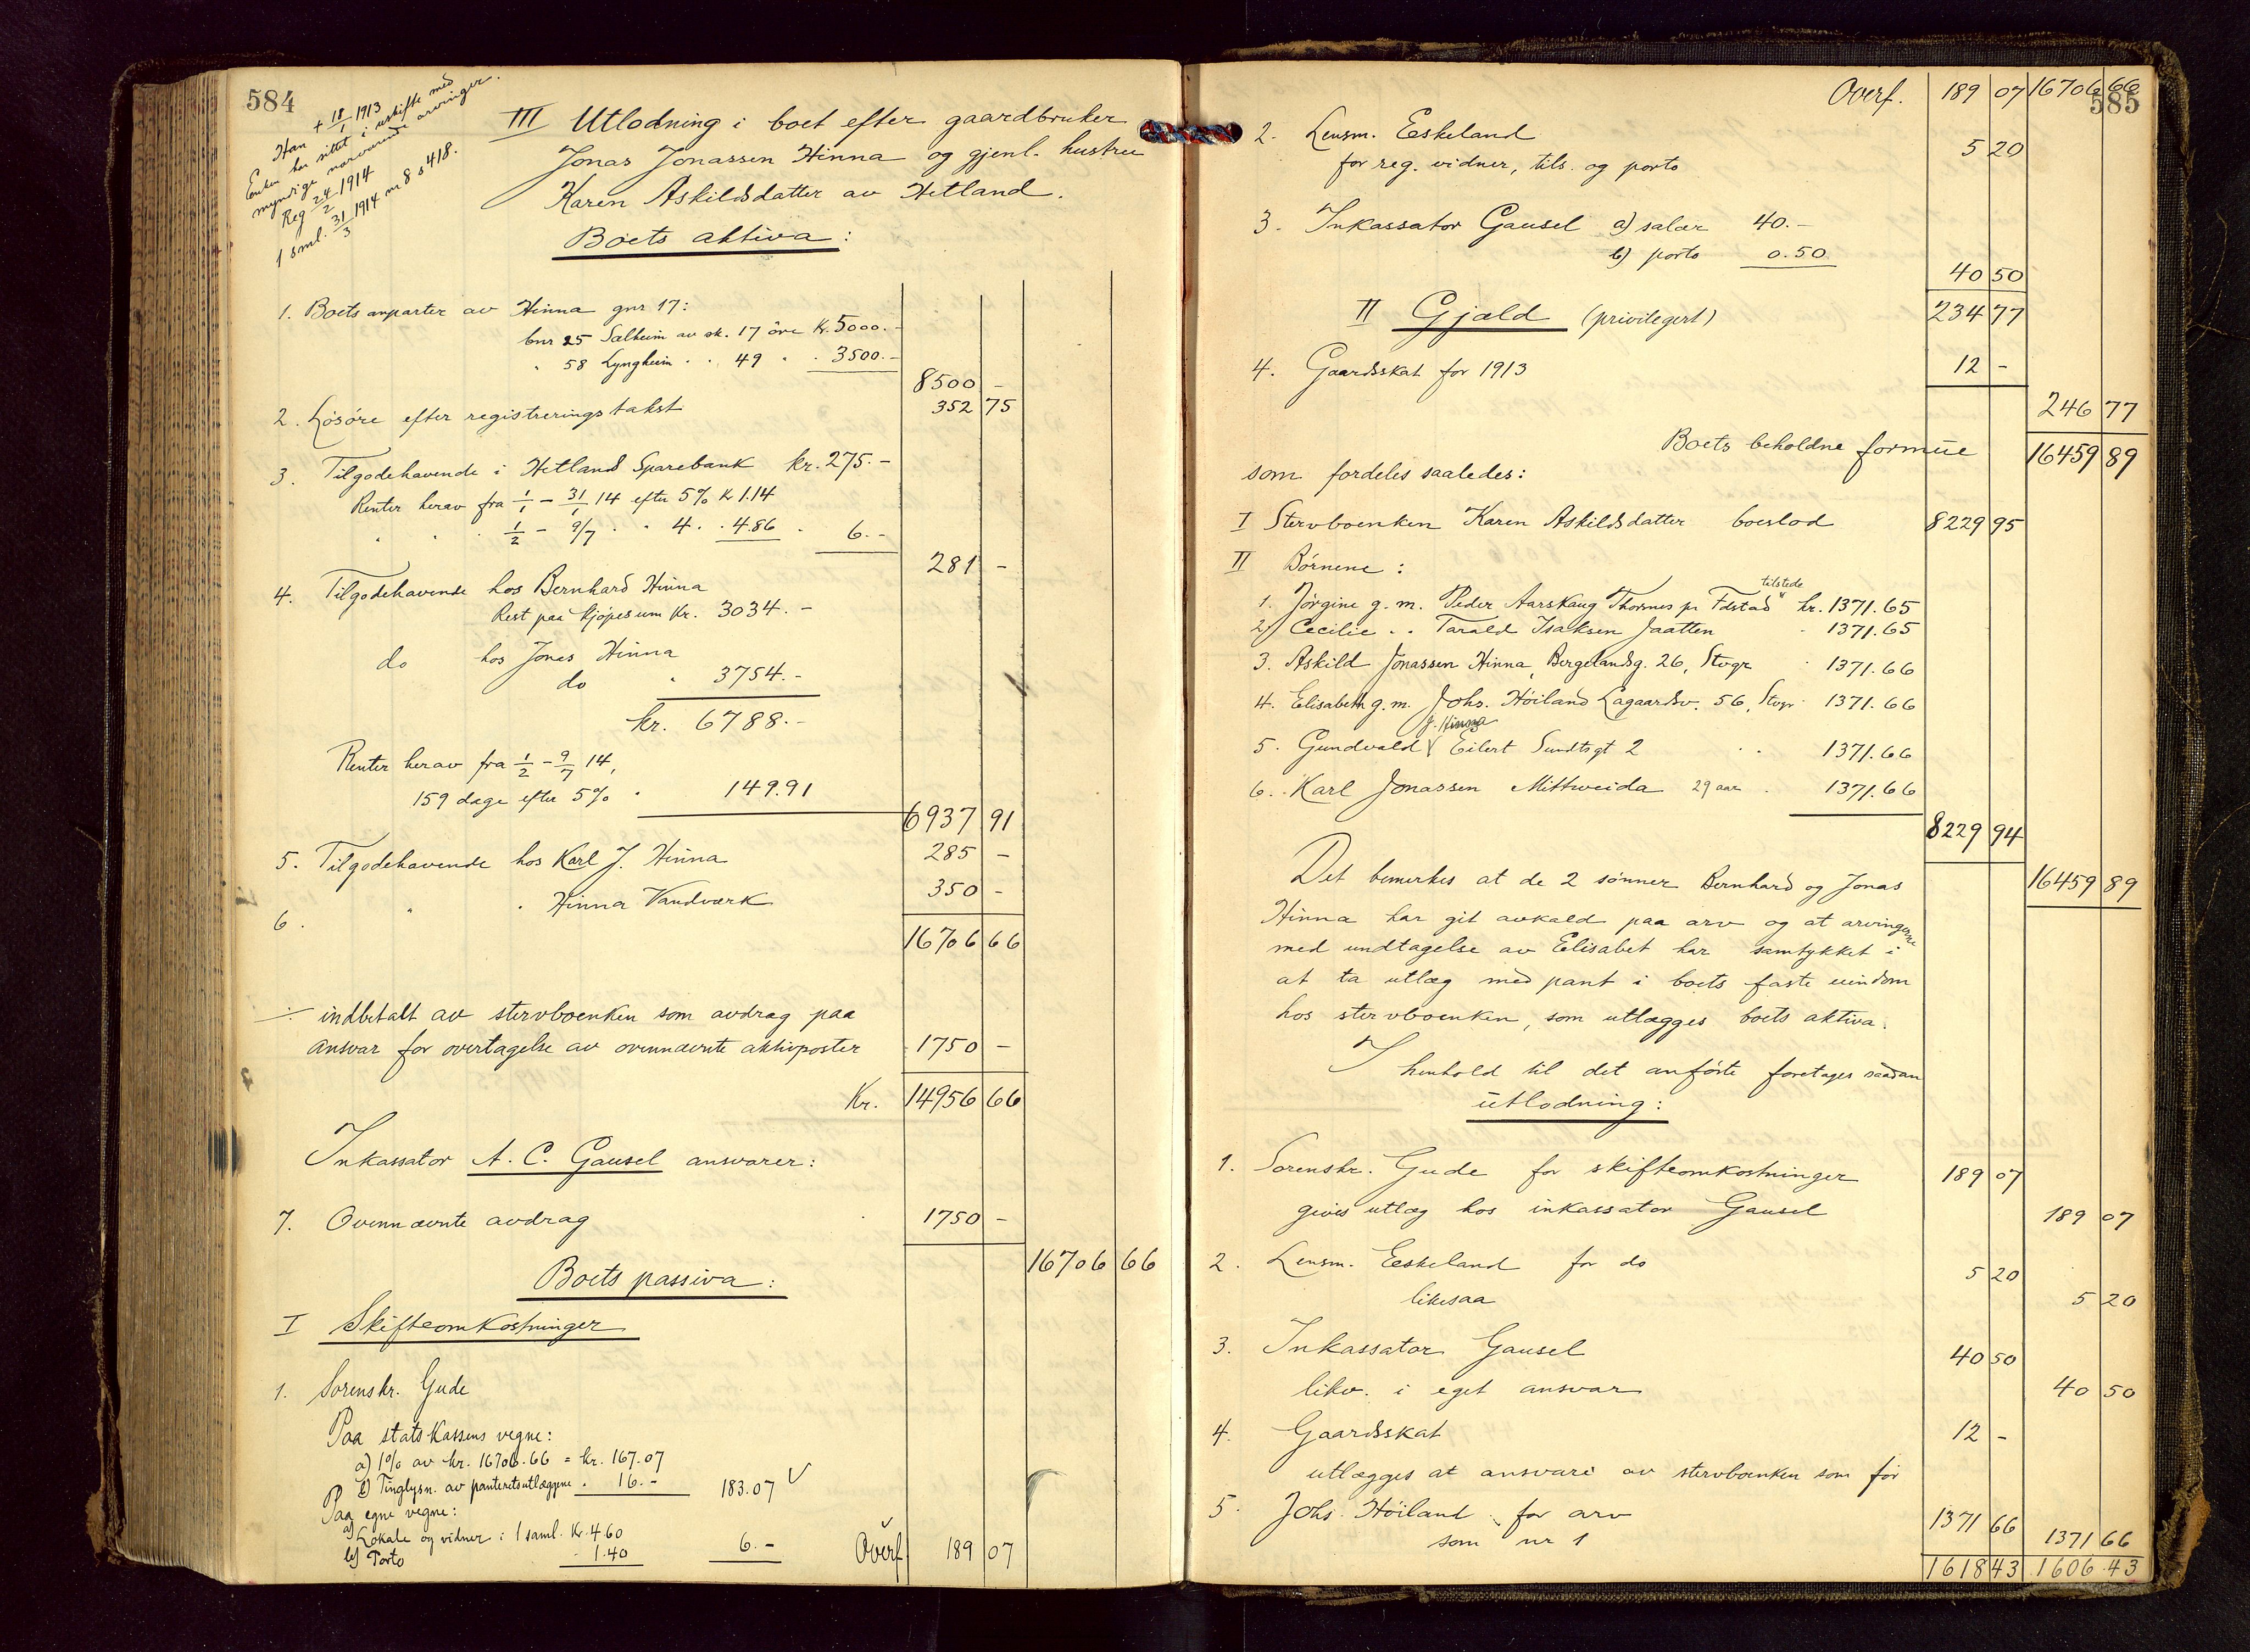 584
Han + 18/1 1913
Enken har sittet i uskifte med
myndige nærværende arvinger.
Reg 24/2 1914
1 sml. 31/3 1914 nr 8 s 418.
III Utlodning i boet efter gaardbruker
Jonas Jonassen Hinna og gjenl. hustru
Karen Askildsdatter av Hetland.
Boets aktiva:
1. Boets anparter av Hinna gnr 17:
bnr 25 Solheim av sk. 17 øre Kr. 5000.-
" 58 Lyngheim " " 49 " " 3500.-
8500 -
2. Løsøre efter registreringstakst 352 75
3. Tilgodehavende i Hetland Sparebank kr. 275.-
Renter herav fra 1/1 - 31/1 14 efter 5% kr 1.14
" " " 1/2 - 9/7 " " 4 " " 4.86 " 6.-
281 -
4. Tilgodehavende hos Bernhard Hinna
Rest paa kjøpesum Kr. 3034.-
do hos Jonas Hinna
do " 3754.-
kr. 6788.-
Renter herav fra 1/2 - 9/7 14,
159 dage efter 5% " 149.91
6937 91
5. Tilgodehavende hos Karl J. Hinna 285 -
6. " " Hinna Vandværk 350 -
16706 66
÷ indbetalt av stervboenken som avdrag paa
ansvar for overtagelse av ovennævnte aktivposter 1750 -
Kr. 14956 66
Inkassator A. C. Gausel ansvarer:
7. Ovennævnte avdrag 1750 -
16706 66
Boets passiva:
I Skifteomkostninger
1. Sorenskr. Gude
Paa statskassens vegne:
a) 1% av kr. 16706.66 = kr. 167.07
b) Tinglysn. av panteretsutlæggene " 16.- 183.07
Paa egne vegne:
a) Lokale og vidner i 1 saml. Kr. 4.60
b) Porto 1.40 6.- Overf 189 07
585
Overf. 189 07 16706 66
2. Lensm. Eskeland
for reg. vidner, tils. og porto 5 20
3. Inkassator Gausel a) salær 40.-
b) porto 0.50
40 50
234 77
II Gjæld (privilegert)
4. Gaardsskat for 1913 12 -
246 77
Boets beholdne formue 16459 89
som fordeles saaledes:
I Stervboenken Karen Askildsdatter boeslod 8229 95
II Børnene:
tilstede
1. Jørgine g. m. Peder Aarskaug Thornes pr. Fdstad kr. 1371.65
2) Cecilie " " Tarald Isaksen Jaatten " 1371.65
3. Askild Jonassen Hinna, Bergelandsg. 26, Stvgr " 1371.66
4. Elisabeth g. m. Johs. Høiland Lagaardsv. 56, Stvgr 1371.66
J. Hinna
5. Gundvald Eilert Sundtsgt 2 " " 1371.66
6. Karl Jonassen Mittweida 29 aar " 1371.66
8229 94
16459 89
Det bemerkes at de 2 sønner Bernhard og Jonas
Hinna har git avkald paa arv og at arvingerne
med undtagelse av Elisabet har samtykket i
at ta utlæg med pant i boets faste eiendom
hos stervboenken, som utlægges boets aktiva.
I henhold til det anførte foretages saadan
utlodning:
1. Sorenskr. Gude for skifteomkostninger 189 07
gives utlæg hos inkassator Gausel 189 07
2. Lensm. Eskeland for do 5 20
likesaa 5 20
3. Inkassator Gausel 40 50
likv. i eget ansvar 40 50
4. Gaardsskat 12 -
utlægges at ansvare av stervboenken som før
5. Johs. Høiland for arv 1371 66
som nr 1 1371 66
1618 43 1606 43